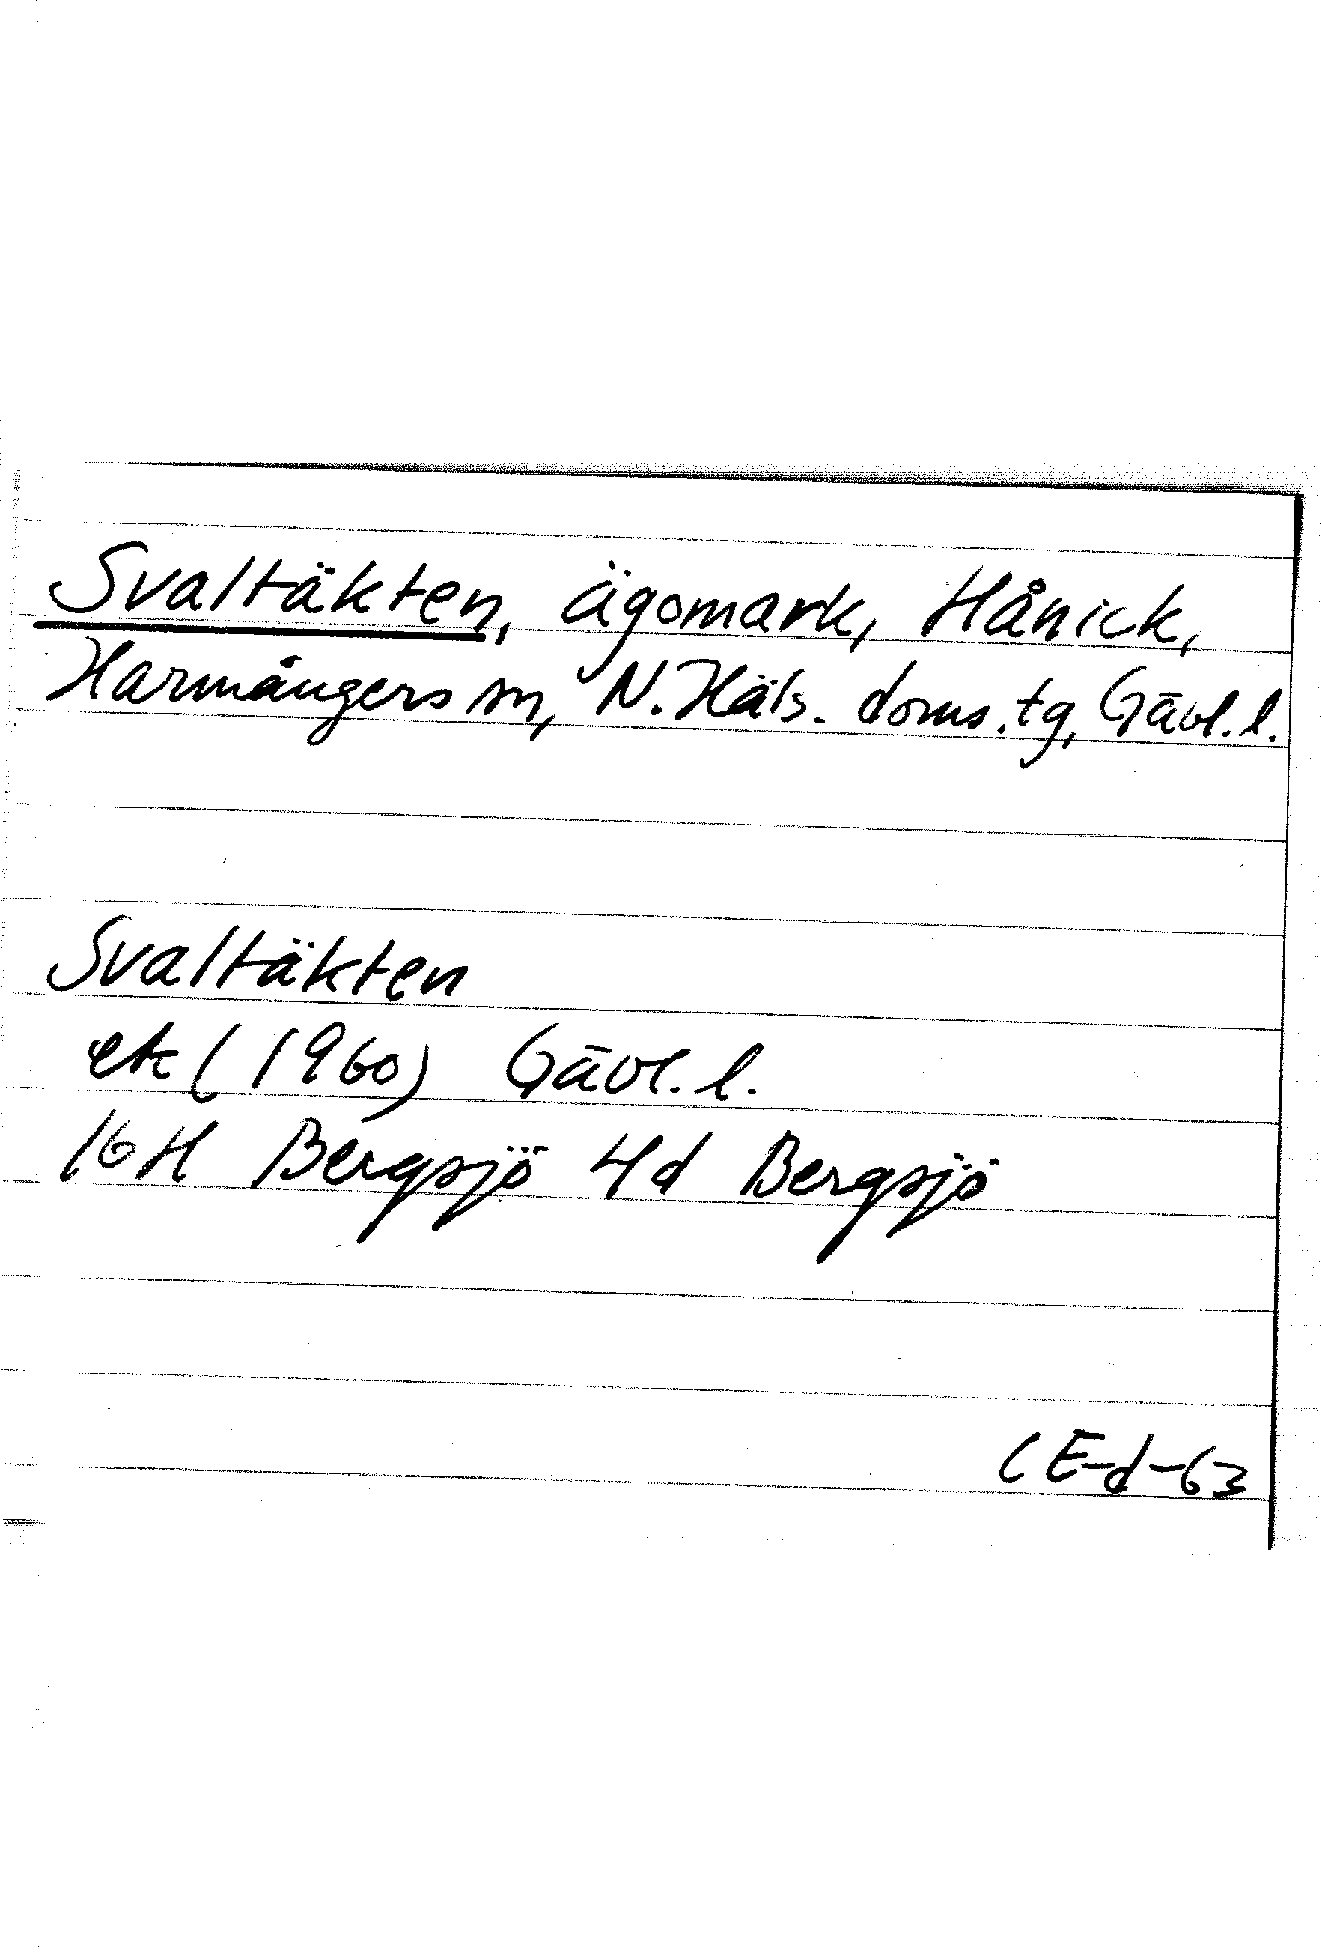 Svaltäkten, ägomark, Hånick,
Harmångers sn, N. Häls. doms.tg, Gävl. l.
Svaltäkten
ek (1960) Gävl. l.
16H Bergsjö 4d Bergsjö
CE-d-63